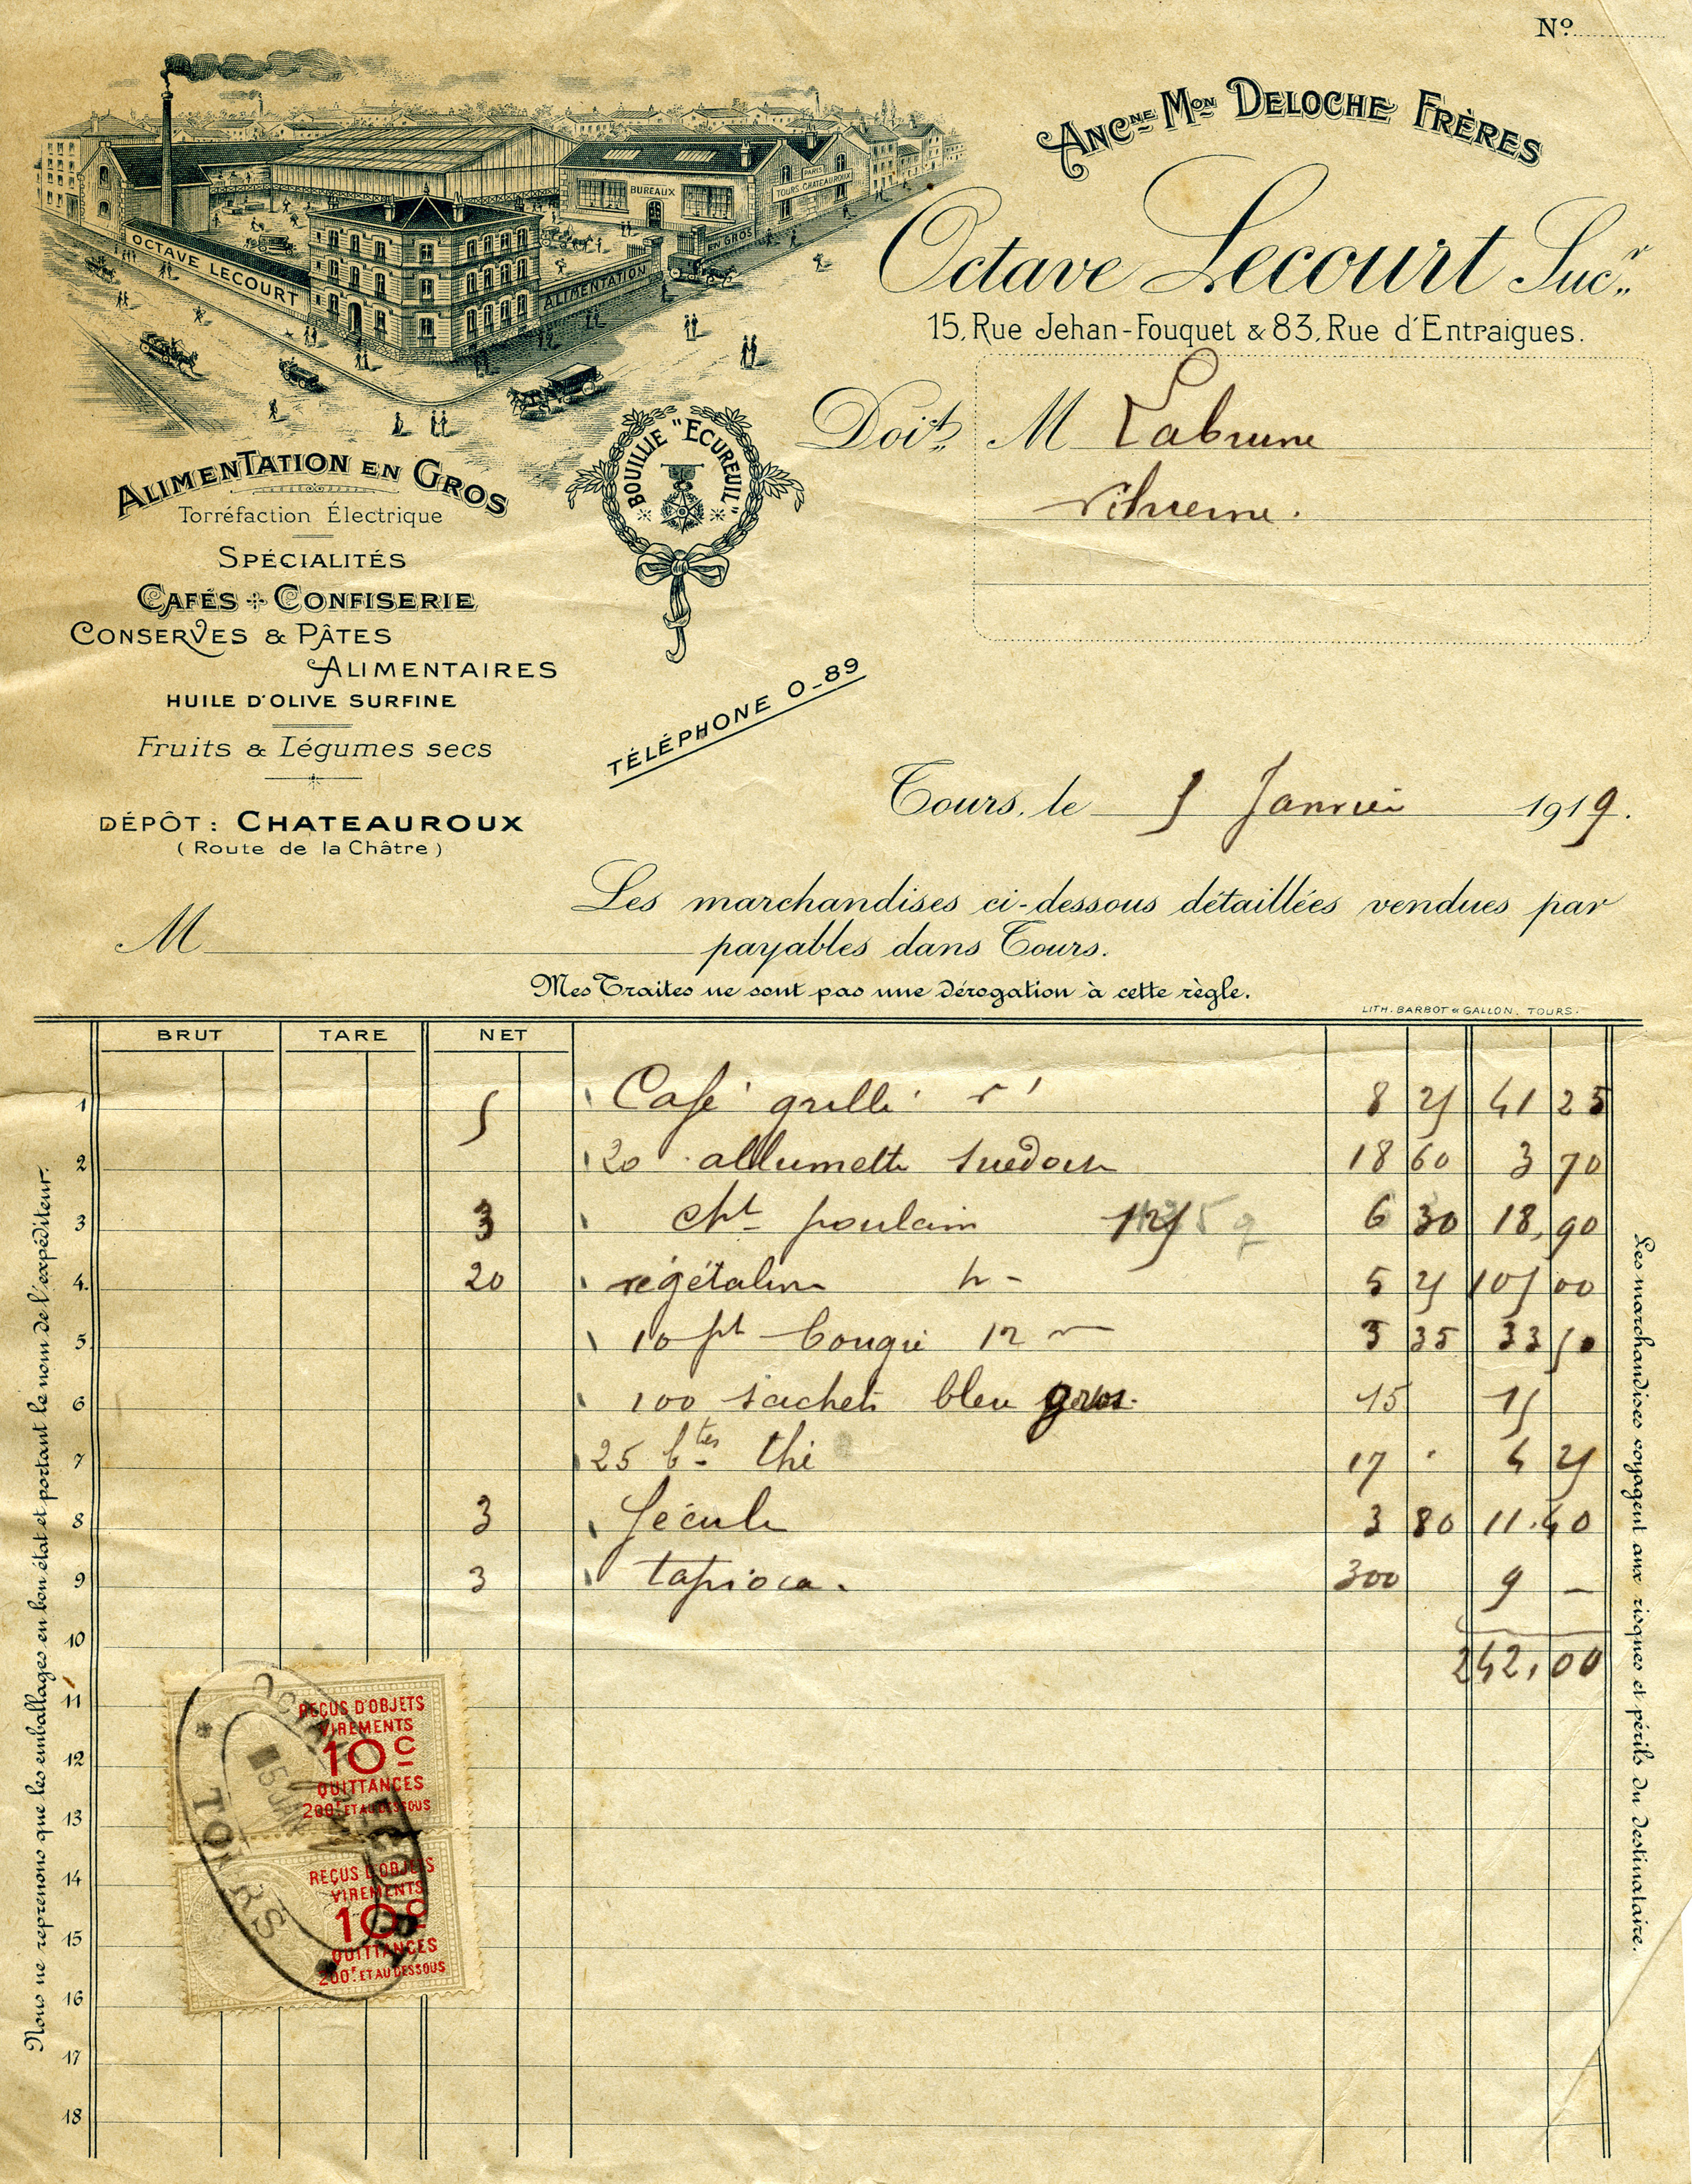 Nº
ANCNE MON DELOCHE FRÈRES
Octave Lecourt Sucr
15, Rue Jehan-Fouquet & 83, Rue d'Entraigues.
OCTAVE LECOURT
ALIMENTATION
EN GROS
BUREAUX
PARIS
TOURS-CHATEAUROUX
Doit M Labrune
ALIMENTATION EN GROS
Torréfaction Électrique
SPÉCIALITÉS
CAFÉS + CONFISERIE
CONSERVES & PÂTES
ALIMENTAIRES
HUILE D'OLIVE SURFINE
Fruits & Légumes secs
DÉPÔT: CHATEAUROUX
(Route de la Châtre)
BOUILLIE "ECUREUIL"
TÉLÉPHONE 0-89
Tours, le 5 Janvier 1919.
Les marchandises ci-dessous détaillées vendues par
M payables dans Tours.
Mes Traites ne sont pas une dérogation à cette règle.
LITH. BARBOT & GALLON. TOURS.
BRUT TARE NET
1 5 Café grillé 8 25 41 25
2 20 allumette suedoise 18 60 3 70
3 3 Cht poulain 125 6 30 18,90
4 20 végétaline 5 25 105 00
5 10 pt bougie 12 3 35 33 50
6 100 sachets bleu gros. 15 15
7 25 btes thé 17 4 25
8 3 fécule 3 80 11.40
9 3 tapioca. 300 9 –
10 242,00
11
12
13
14
15
16
17
18
REÇUS D'OBJETS
VIREMENTS
10 C
QUITTANCES
200F ET AU DESSOUS
REÇUS D'OBJETS
VIREMENTS
10 C
QUITTANCES
200F ET AU DESSOUS
OCTAVE LECOURT
5 JAN
* TOURS
Nous ne reprenons que les emballages en bon état et portant le nom de l'expéditeur.
Les marchandises voyagent aux risques et périls du destinataire.